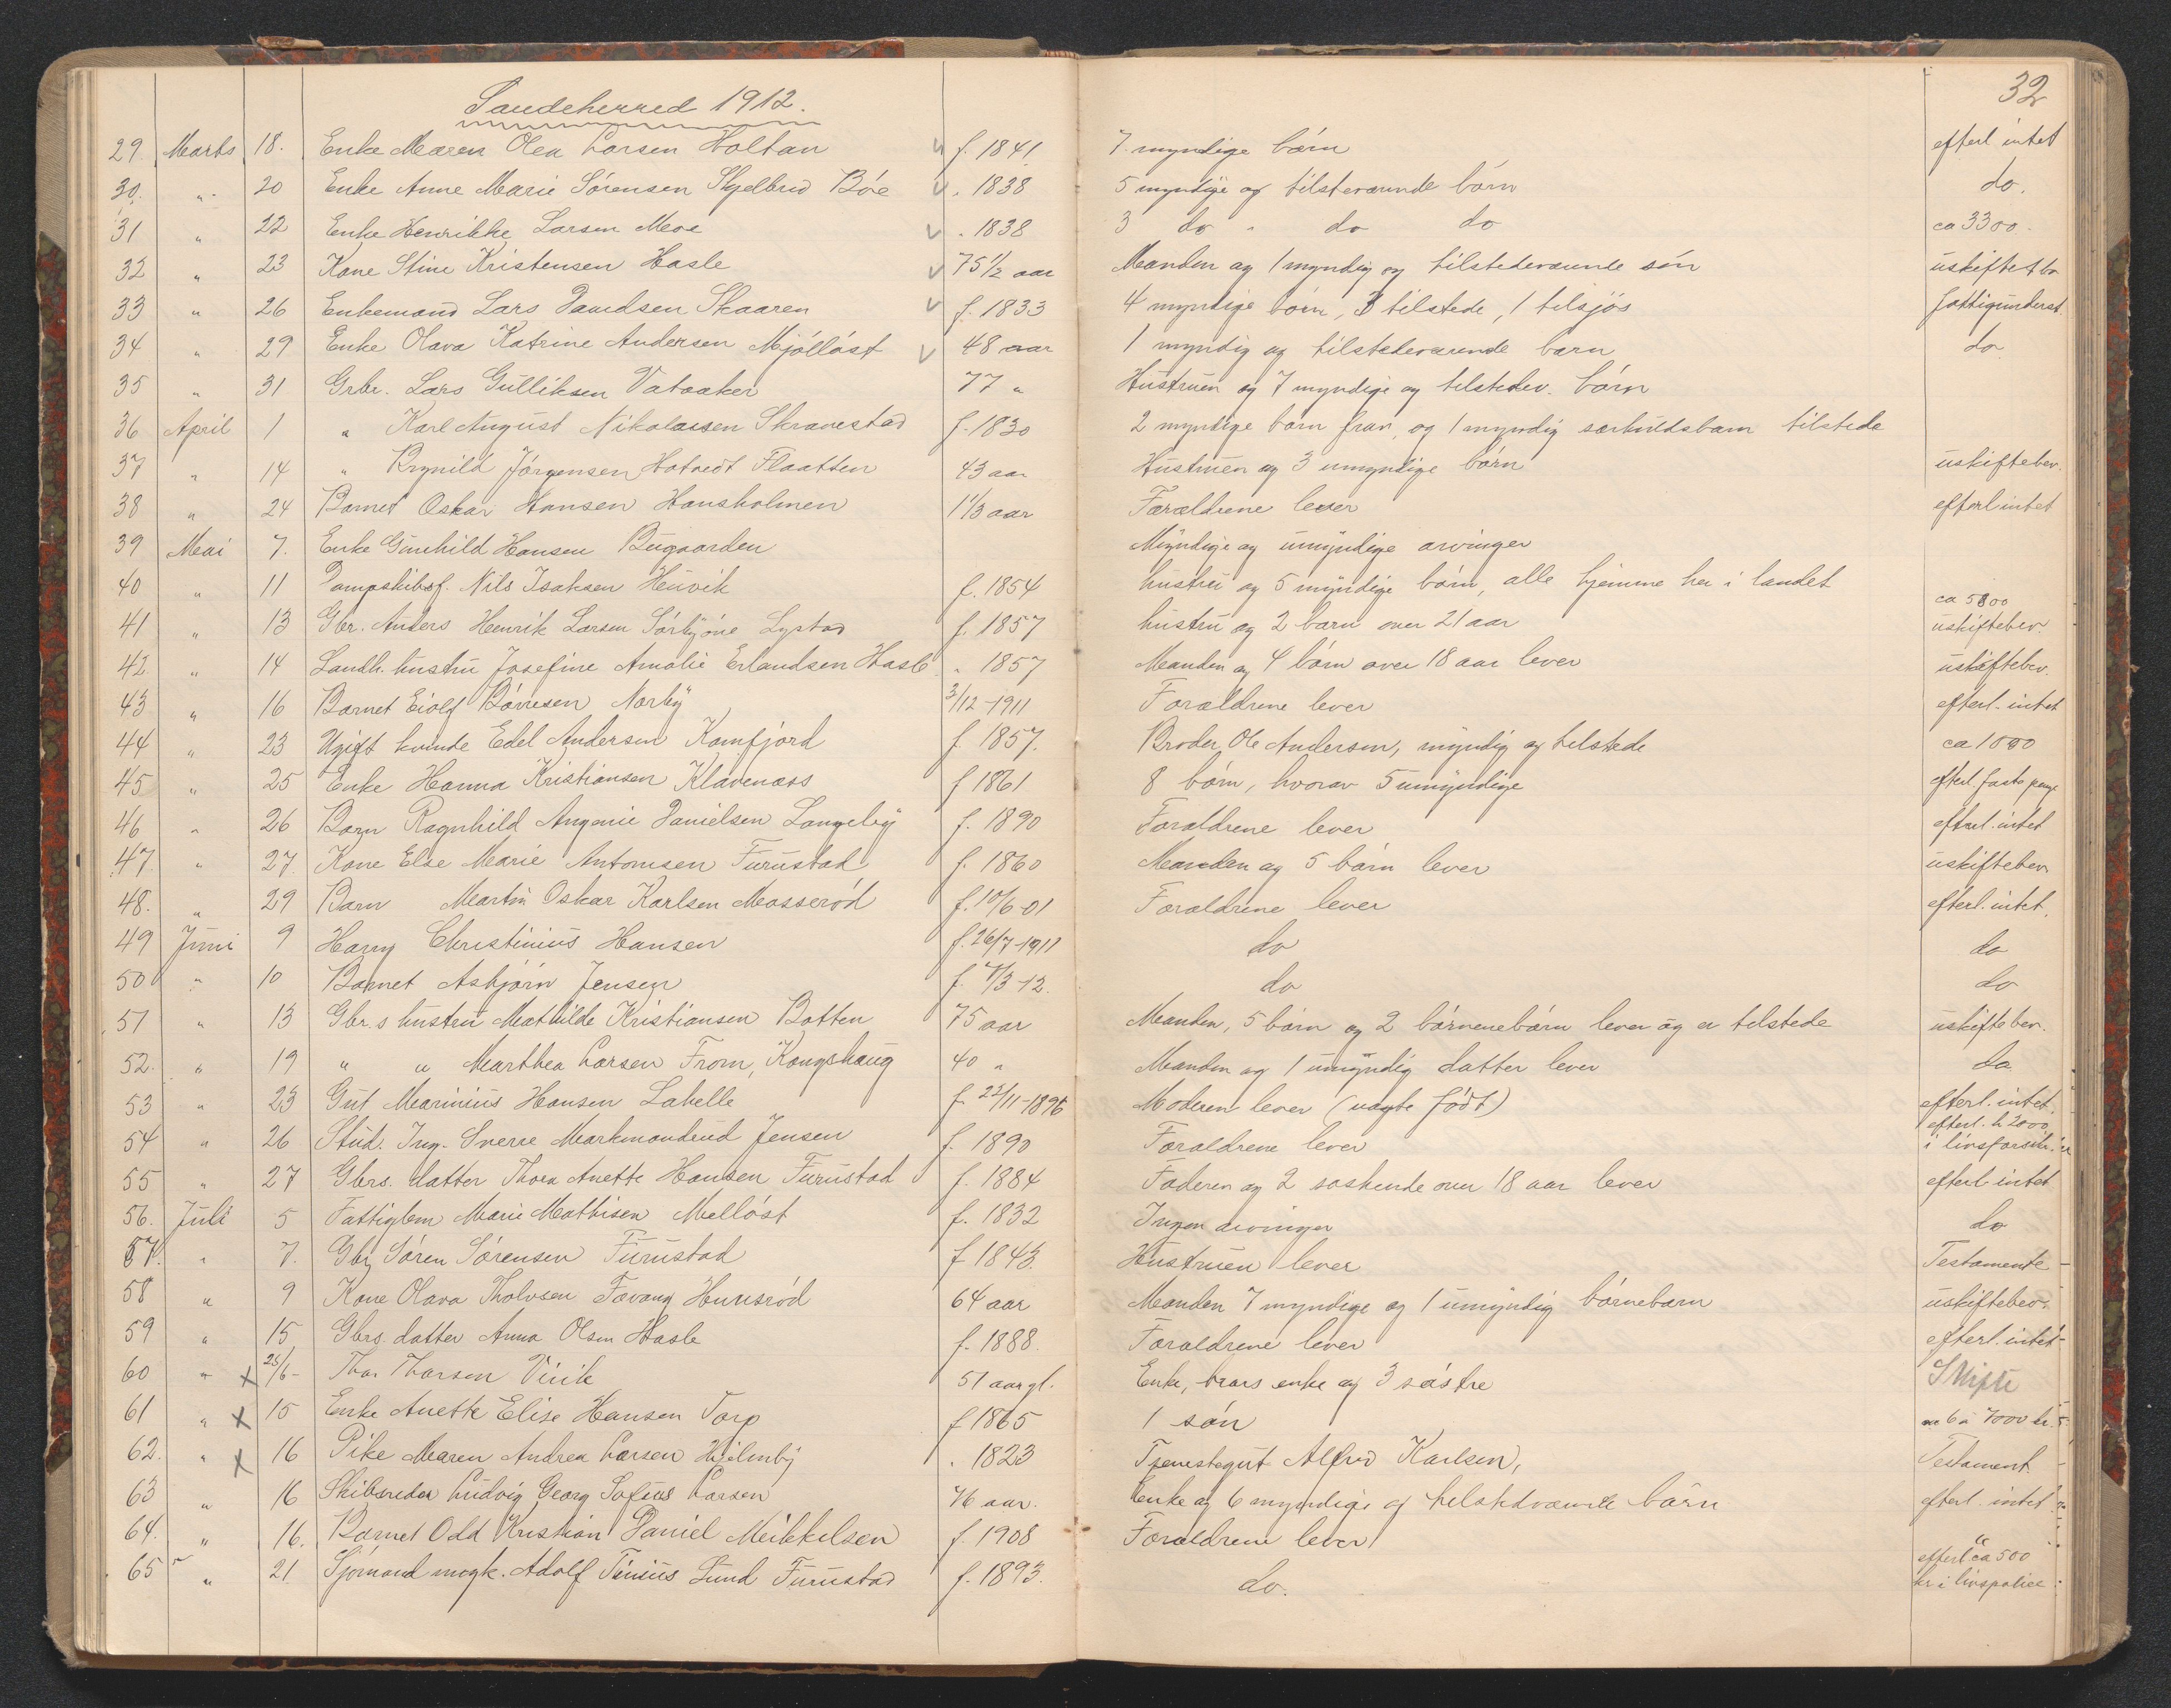 32
Sandeherred 1912.
29. Marts 18. Enke Maren Olea Larsen Holtan f. 1841. 7 myndige børn efterl intet
30. " 20 Enke Anne Marie Sørensen Skjelbred Bøe " 1838 5 myndige og tilsteværende børn do.
31 " 22 Enke Henrikke Larsen Moe " 1838 3 do " do do ca 3300.
32 " 23 Kone Stine Kristensen Hasle 75 1/2 aar Manden og 1 myndig og tilstedeværende søn uskiftet bo
33 " 26 Enkemand Lars Davidsen Skaaren f. 1833 4 myndige børn, 3 tilstede, 1 tilsjøs fattigunderst.
34 " 29 Enke Olava Katrine Andersen Mjølløst 48 aar 1 myndig og tilstedeværende barn do
35 " 31 Grbr. Lars Gulliksen Vataaker 77 " Hustruen og 7 myndige og tilstedev. børn
36 April 1 " Karl August Nikolaisen Skravestad f. 1830 2 myndige børn fravær og 1 myndig særkuldsbarn tilstede
37 " 14 " Brynild Jørgensen Hotvedt Flaatten 43 aar Hustruen og 3 umyndige børn uskiftebev.
38 " 24 Barnet Oskar Hansen Hansholmen 1 1/3 aar Forældrene lever efterl intet
39 Mai 7. Enke Gunhild Hansen Bugaarden Myndige og umyndige arvinger
40 " 11 Dampskibsf. Nils Isaksen Heuvik f. 1854 hustru og 5 myndige børn, alle hjemme her i landet
41 " 13 Gbr. Anders Henrik Larsen Sørbyøne Lystad f. 1857 hustru og 2 barn over 21 aar ca 5800 uskiftebev.
42 " 14 Landh. hustru Josefine Amalie Erlandsen Hasle " 1857 Manden og 4 børn over 18 aar lever uskiftebev.
43 " 16 Barnet Eiolf Børresen Nørby 3/12-1911 Forældrene lever efterl. intet
44 " 23 Ugift kvinde Edel Andersen Kamfjord f. 1857. Broder Ole Andersen, myndig og tilstede ca 1000
45 " 25 Enke Hanna Kristiansen Klavenæss f 1861 8 børn, hvorav 5 umyndige
46 " 26 Barn Ragnhild Angenie Danielsen Langeby f. 1890 Forældrene lever efterl. intet
47 " 27. Kone Else Marie Antonisen Furustad f. 1860 Manden og 5 børn lever uskiftebev.
48. " 29 Barn Martin Oskar Karlsen Mosserød f. 10/6-01 Forældrene lever efterl. intet.
49 Juni 9 Harry Christinius Hansen f. 26/7-1911 do do
50 " 10 Barnet Asbjørn Jensen f. 4/3-12. do do
51 " 13 Gbr.s hustru Mathilde Kristiansen Botten 75 aar Manden, 5 børn og 2 børnenebørn lever og er tilstede uskiftebev.
52. " 19 " " Marthea Larsen From, Kongshaug 40 " Manden og 1 umyndig datter lever do
53 " 23 Gut Marinius Hansen Labelle f. 23/11-1896 Moderen lever (uægte født) efterl. intet.
54 " 26 Stud. Ing. Sverre Markmanrud Jensen f. 1890 Forældrene lever efterl. k 2000 i livsforsikr.
55 " 27 Gbrs. datter Thora Anette Hansen Furustad f. 1884 Faderen og 2 søskende over 18 aar lever efterl. intet
56. Juli 5 Fattiglem Marie Mathisen Melløst f. 1832 Ingen arvinger do
57. " 7. Gbr Søren Sørensen Furustad f 1843. Hustruen lever Testamente
58 " 9 Kone Olava Tholvsen Favang Hunsrød 64 aar Manden 7 myndige og 1 umyndig børnebarn uskiftebev.
59 " 15 Gbrs. datter Anna Olsen Hasle f. 1888. Forældrene lever efterl. intet
60 " x 25/6- Thor Thorsen Virik 51 aar gl. Enke, brors enke og 3 søstre Skifte
61 " x 15 Enke Anette Elise Hansen Torp f 1865 1 søn ca 6 à 7000 kr.
62. " x 16 Pike Maren Andrea Larsen Hjelmby " 1823 Tjenestegut Alfred Karlsen, Testament
63 " 16 Skibsreder Ludvig Georg Sofus Larsen 76 aar. Enke og 6 myndige og tilstedværende børn efterl. intet
64. " 16. Barnet Odd Kristian Daniel Meikkelsen f. 1908 Forældrene lever "
65 " 21 Sjømand ungk. Adolf Tinius Lund Furustad f. 1893. do. efterl ca 500 kr i livspolice